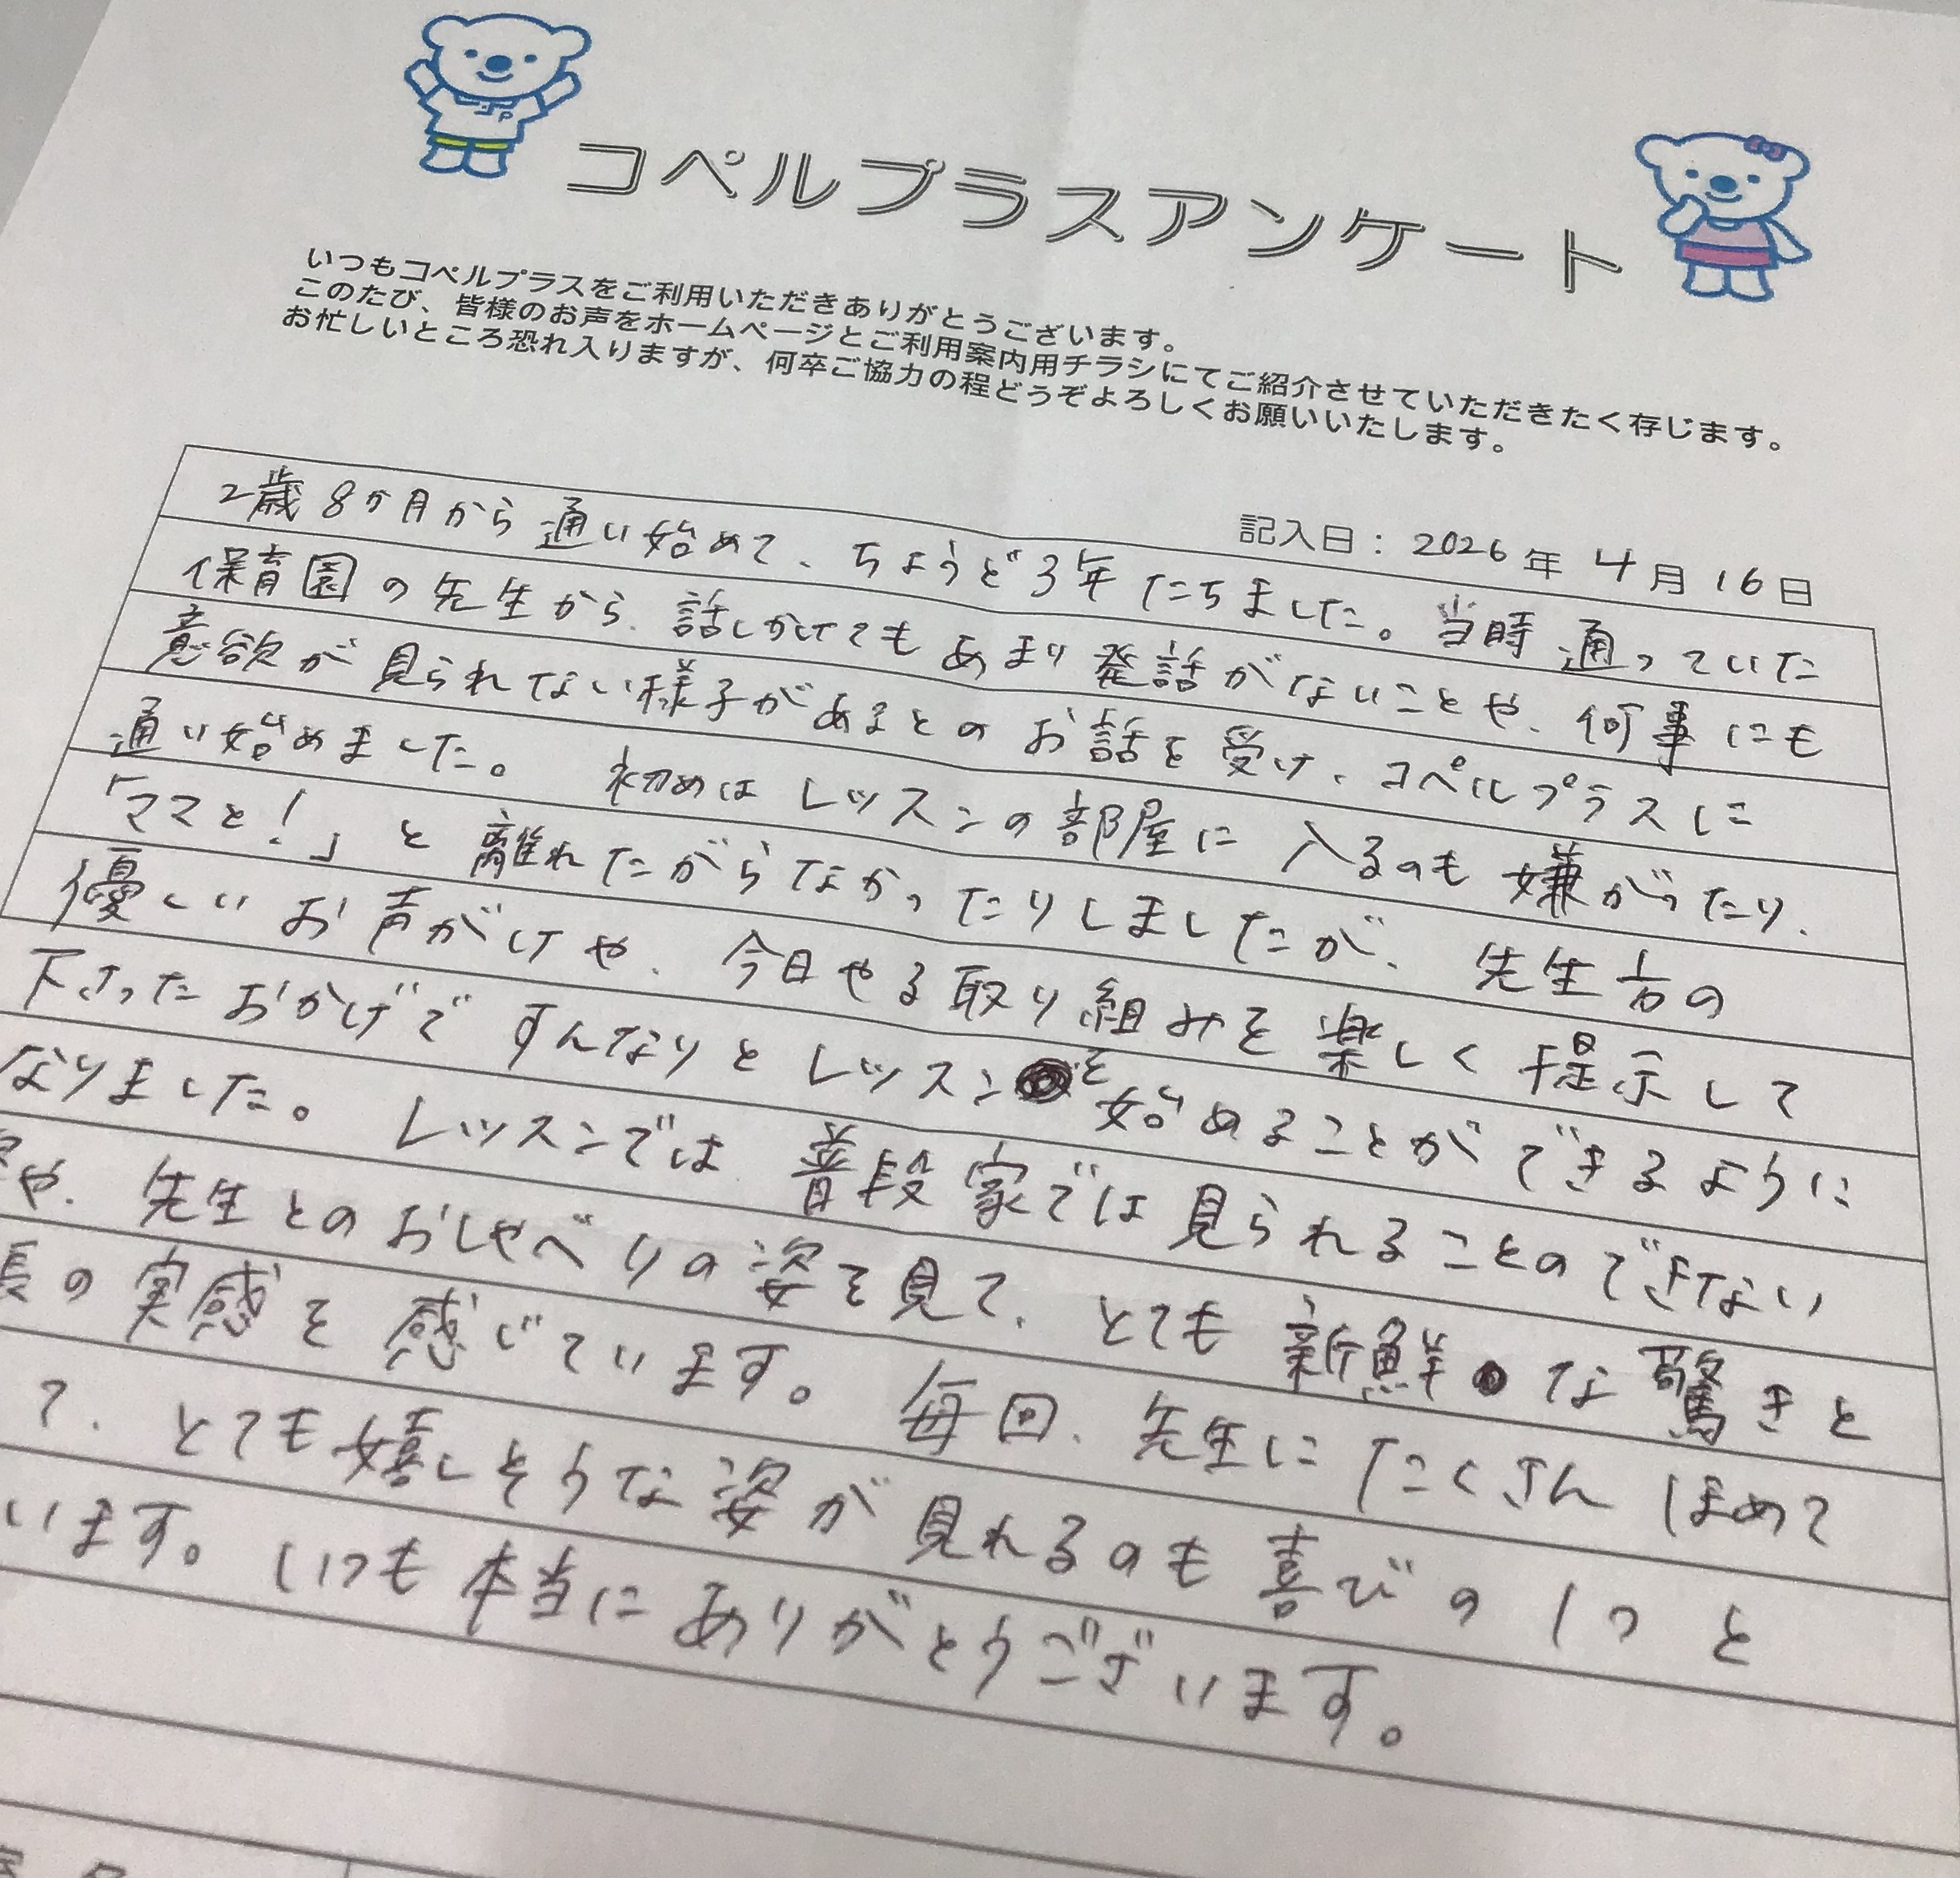 コペルプラスアンケート
いつもコペルプラスをご利用いただきありがとうございます。
このたび、皆様のお声をホームページとご利用案内用チラシにてご紹介させていただきたく存じます。
お忙しいところ恐れ入りますが、何卒ご協力の程どうぞよろしくお願いいたします。
記入日：2026年4月16日
2歳8か月から通い始めて、ちょうど3年たちました。当時通っていた
保育園の先生から、話しかけてもあまり発話がないことや、何事にも
意欲が見られない様子があるとのお話を受け、コペルプラスに
通い始めました。初めはレッスンの部屋に入るのも嫌がったり、
「ママと！」と離れたがらなかったりしましたが、先生方の
優しいお声がけや、今日やる取り組みを楽しく提示して
下さったおかげですんなりとレッスンを始めることができるように
なりました。レッスンでは普段家では見られることのできない
や、先生とのおしゃべりの姿を見て、とても新鮮な驚きと
長の実感を感じています。毎回、先生にたくさんほめて
て、とても嬉しそうな姿が見れるのも喜びの1つと
います。いつも本当にありがとうございます。